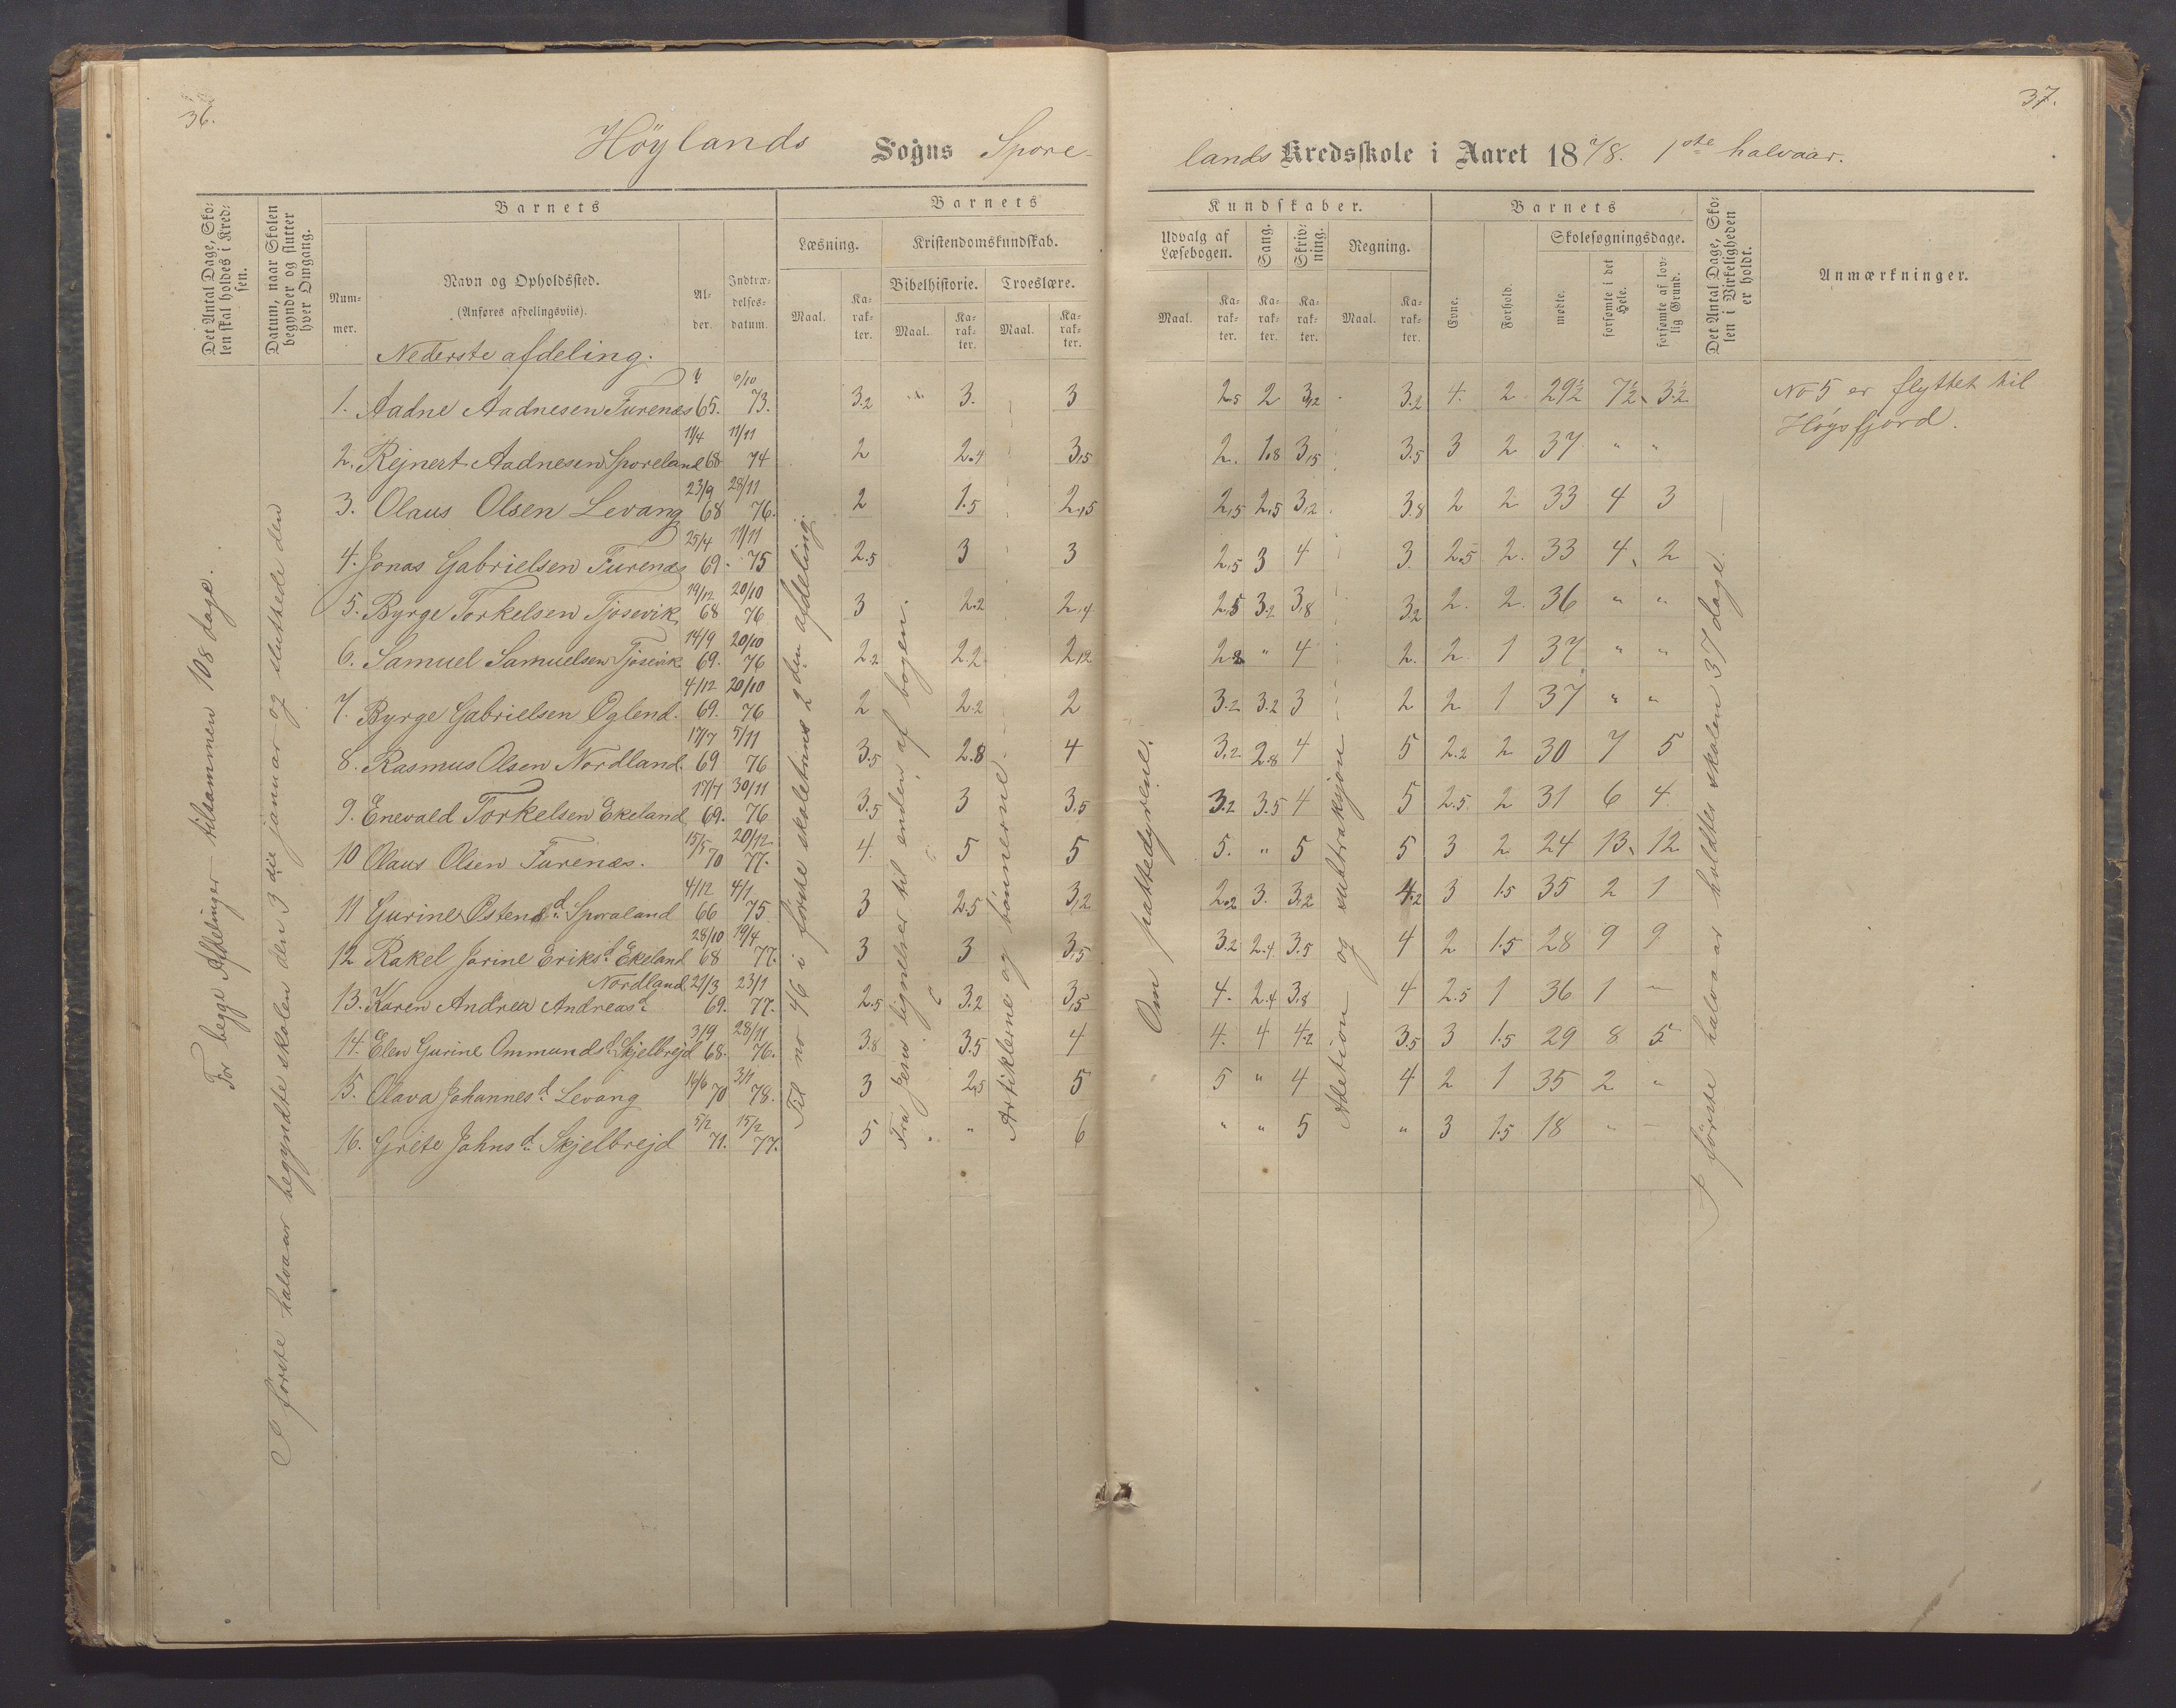 36.
37.
Höylands Sogns Spore-
lands Kredsskole i Aaret 187/8. 1ste halvaar.
Det Antal Dage, Sko-
len skal holdes i Kred-
sen.
Datum, naar Skolen
begynder og slutter
hver Omgang.
Barnets
Num-
mer.
Navn og Opholdssted.
(Anføres afdelingsviis).
Al-
der.
Indtræ-
delses-
datum.
Barnets
Læsning.
Kristendomskundskab.
Maal.
Ka-
rak-
ter.
Bibelhistorie.
Troeslære.
Maal.
Ka-
rak-
ter.
Maal.
Ka-
rak-
ter.
Kundskaber.
Udvalg af
Læsebogen.
Sang.
Skriv-
ning.
Regning.
Maal.
Ka-
rak-
ter.
Ka-
rak-
ter.
Ka-
rak-
ter.
Maal.
Ka-
rak-
ter.
Barnets
Evne.
Forhold.
Skolesøgningsdage.
mødte.
forsømte i det
Hele.
forsømte af lov-
lig Grund.
Det Antal Dage, Sko-
len i Virkeligheden
er holdt.
Anmærkninger.
For begge Afdelinger tilsammen 108 dage.
I förste halvaar begyndte skolen den 3die januar og sluttede den
Nederste afdeling.
1. Aadne Aadnesen Furenæs 65. 73. 3.2 " 3. 3 2.5 2 3,2 3.2 4. 2 29½ 7½ 3½
2. Rejnert Aadnesen Sporeland 11/4 68 11/11 74 2 2.4 3,5 2. 1.8 3,5 3.5 3 2 37 " "
3. Olaus Olsen Levang 23/9 68 28/11 76. 2 1.5 2,5 2,5 2,5 3,2 3.8 2 2 33 4 3
4. Jonas Gabrielsen Furenæs 25/4 69. 11/11 75 2.5 3 3 2,5 3 4 3. 2.5 2. 33 4 2
5. Byrge Torkelsen Tjosevik 19/12 68 20/10 76 3 2.2 2.4 2.5 3.2 3,8 3.2 2. 2. 36 " "
6. Samuel Samuelsen Tjosevik 14/9 69. 20/10 76 2.2 2.2 2,2 2.8 " 4 2. 2 1 37 " "
7. Byrge Gabrielsen Oglend. 4/12 69. 20/10 76 2 2.2 2 3.2 3.2 3 2 2 1 37 " "
8. Rasmus Olsen Nordland. 17/7 69 5/11 76 3.5 2.8 4 3.2 2.8 4 5 2.2 2 30 7 5
9. Enevald Torkelsen Ekeland 17/7 69. 30/11 76 3.5 3 3.5 3.2 3.5 4 5 2.5 2 31 6 4
10 Olaus Olsen Furenæs. 15/5 70 20/12 77. 4. 5 5 5. " 5 5 3 2 24 13 12
11 Gurine Østensd. Sporaland 4/12 66 4/1 75. 3 2.5 3,2 2.2 3. 3,2 4.2 3 1.5 35 2 1
12 Rakel Jorine Eriksd. Ekeland 28/10 68 19/4 77. 3 3 3,5 3.2 2.4 3.5 4 2 1.5 28 9 9
13. Karen Andrea Andreasd. Nordland 21/3 69. 23/1 77. 2.5 3.2 3,5 4. 2.4 3.8 4 2.5 1 36 1 "
14. Elen Gurine Ommundsd. Skjelbrejd 3/9 68. 28/11 76. 3.8 3.5 4 4. 4 4.2 3.5 3 1.5 29 8 5
15. Olava Johannesd. Levang 14/6 70 3/1 78. 3 2,5 5 5 " 4 4 2 1 35 2 "
16. Grete Johnsd. Skjelbrejd 5/2 71. 15/2 77. 5 " 6 " " 5 " 3 1.5 18 " "
Til no 46 i förste skoletrins 2den afdeling.
Fra Jesu lignelser til enden af bogen.
Artiklerne og bönnerne.
Om pattedyrene.
Addition og subtraksjon
I förste halvaar holdtes skolen 37 dage.
No 5 er flyttet til
Høgsfjord.